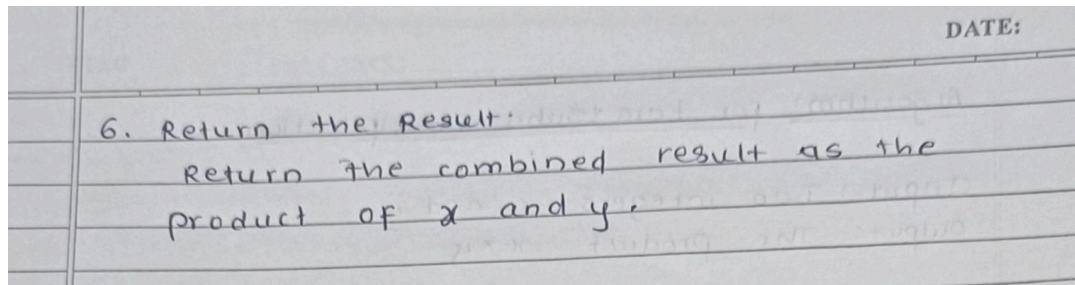 DATE:
6. Return the Result.
Return the combined result as the
product of x and y.